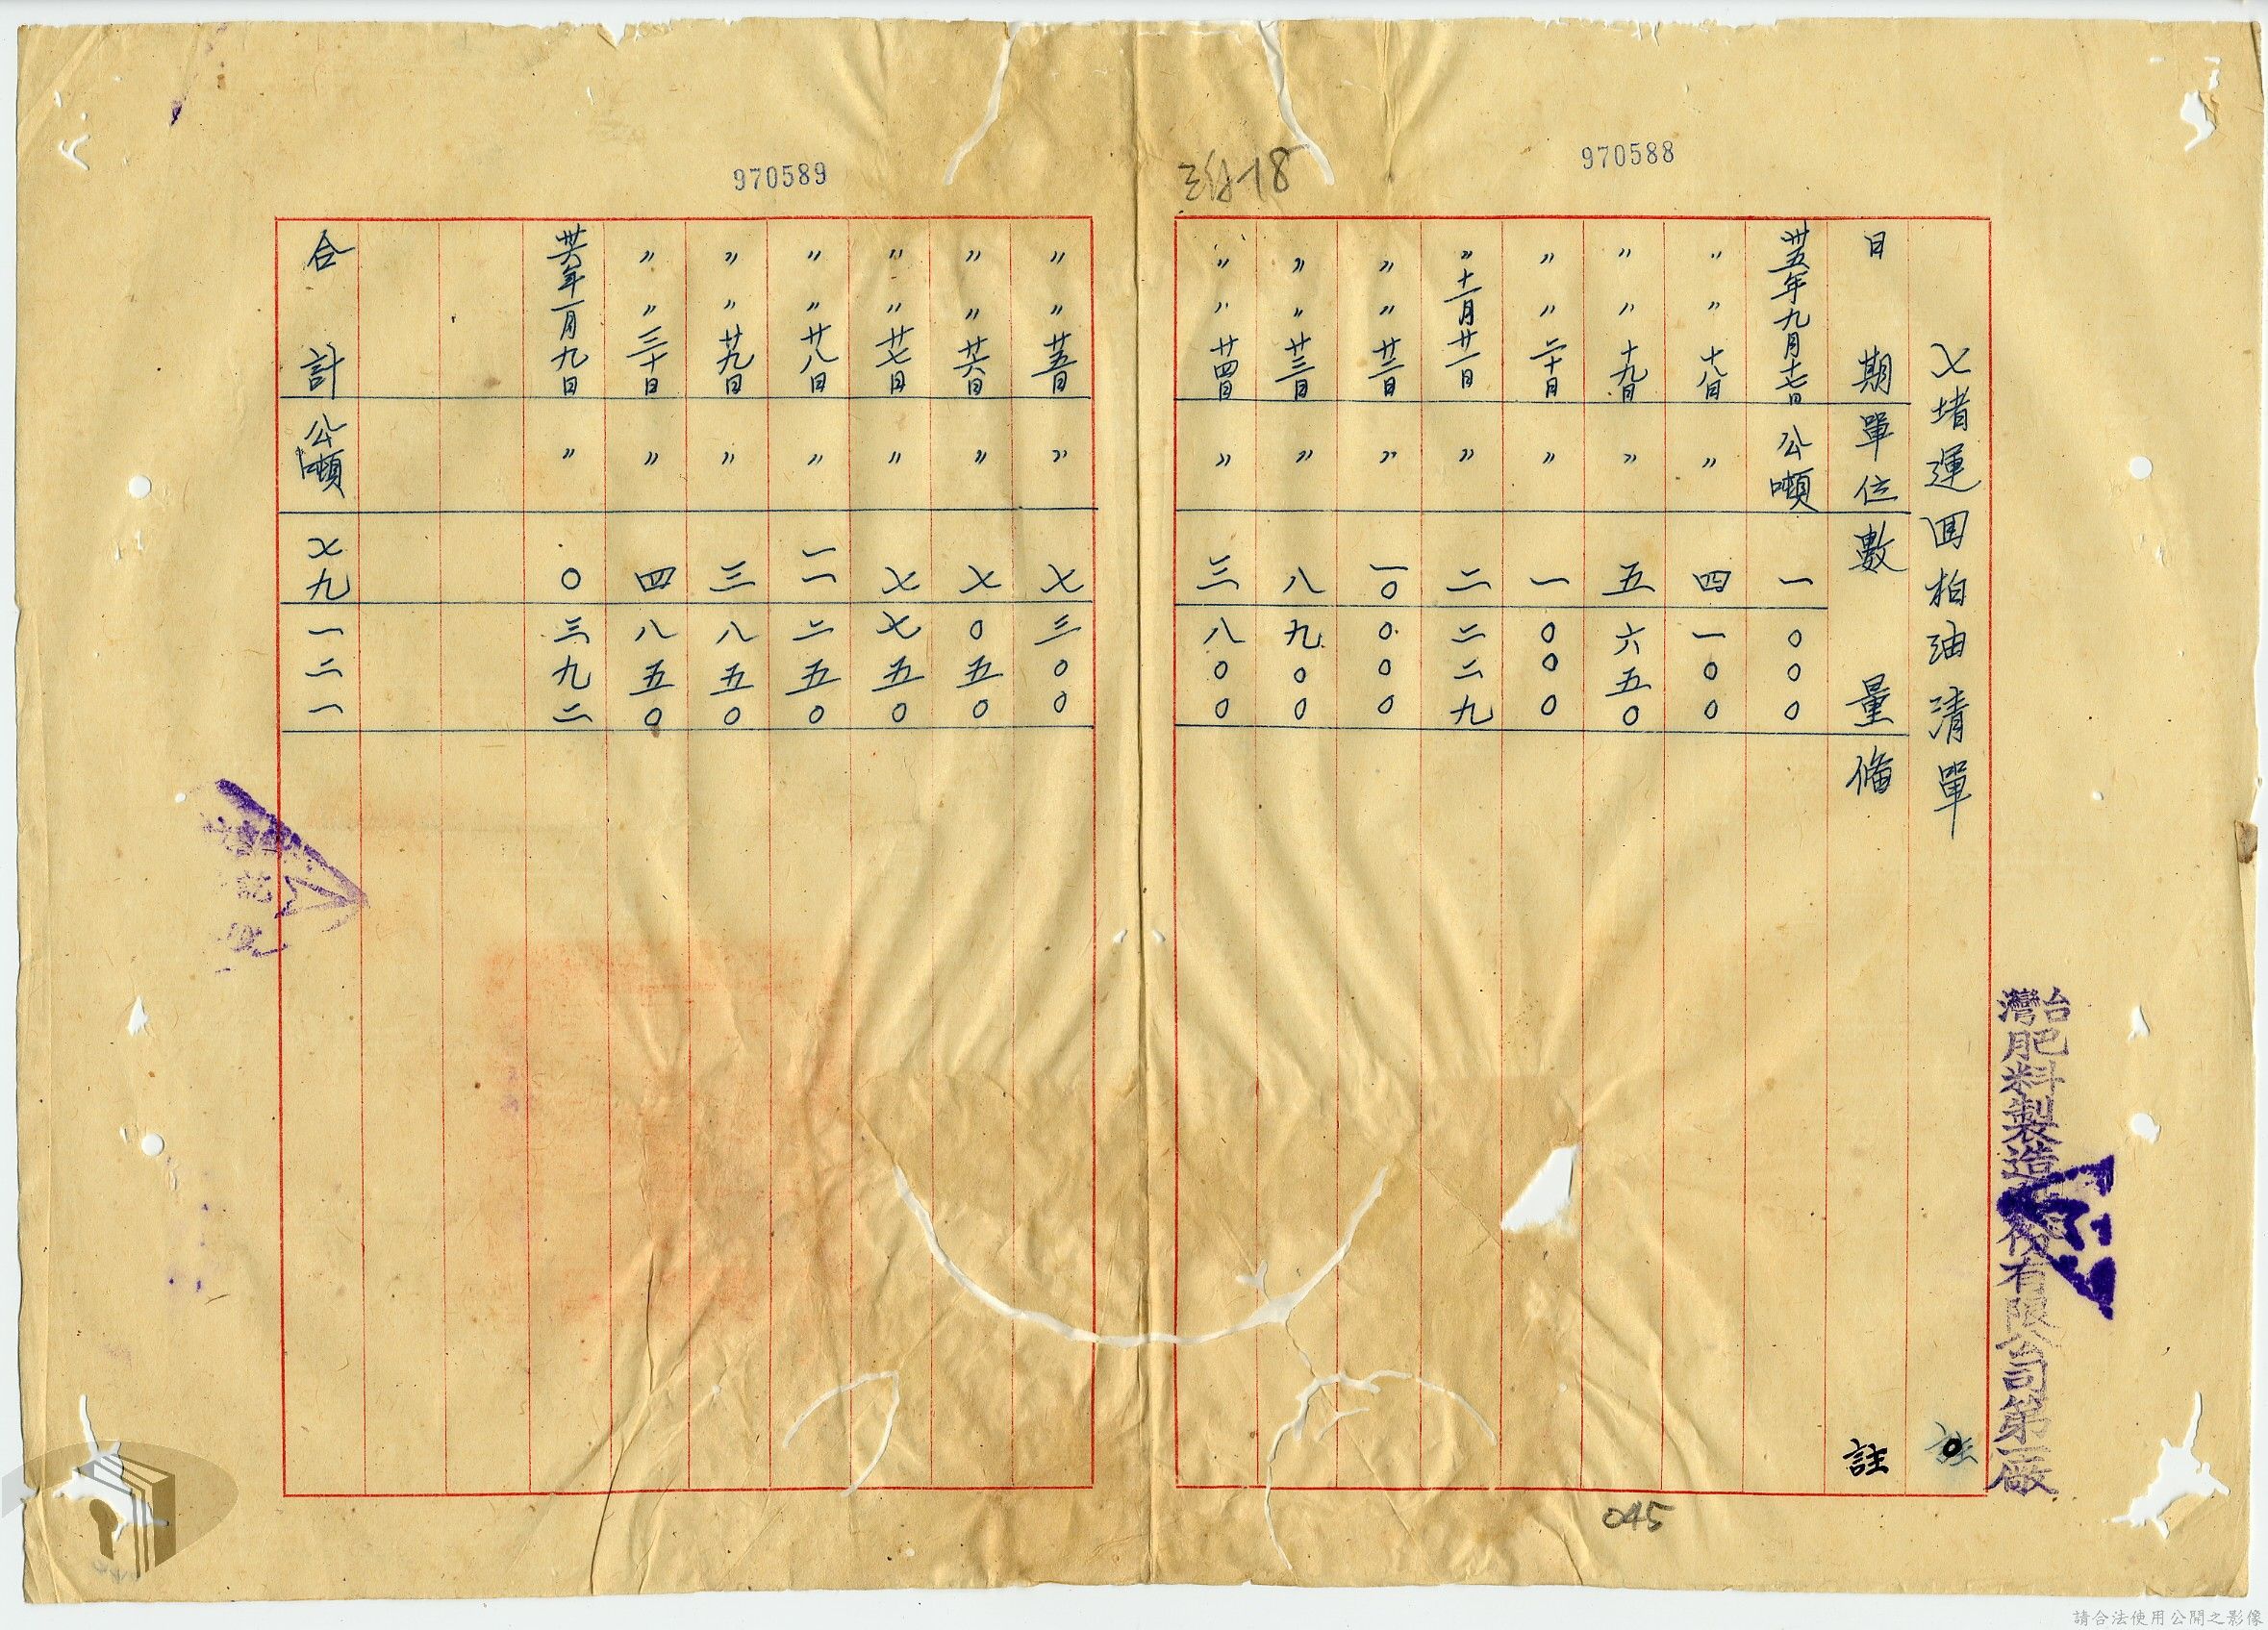 970589
970588
三份-18
台灣肥料製造股份有限公司第一廠
七堵運回柏油清單
日期 單位 數量 備註
卅五年九月十七日 公噸 一 〇〇〇
〃 〃 十八日 〃 四 一〇〇
〃 〃 十九日 〃 五 六五〇
〃 〃 二十日 〃 一 〇〇〇
〃 十一月廿一日 〃 二 二二九
〃 〃 廿二日 〃 一〇 〇〇〇
〃 〃 廿三日 〃 八 九〇〇
〃 〃 廿四日 〃 三 八〇〇
〃 〃 廿五日 〃 七 三〇〇
〃 〃 廿六日 〃 七 〇五〇
〃 〃 廿七日 〃 七 七五〇
〃 〃 廿八日 〃 一一 二五〇
〃 〃 廿九日 〃 三 八五〇
〃 〃 三十日 〃 四 八五〇
卅六年一月九日 〃 〇 三九二
合計 公噸 七九 一二一
045
請合法使用公開之影像